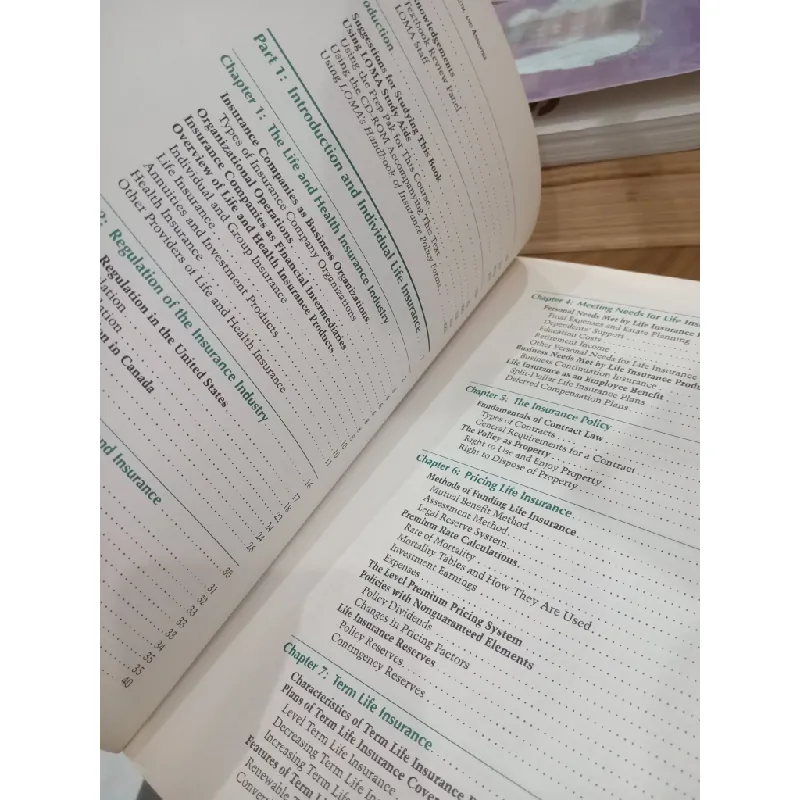 Acknowledgements
Textbook Review Panel
LOMA Staff
Suggestions for Studying This Book
Using LOMA Study Aids
Using the Prep Pak for This Course
Using the CD-ROM Accompanying This Text
Using LOMA's Handbook of Insurance Policy Forms
Part 1: Introduction and Individual Life Insurance
Chapter 1: The Life and Health Insurance Industry
Insurance Companies as Business Organizations
Types of Insurance Company Organizations
Organizational Operations
Insurance Companies as Financial Intermediaries
Overview of Life and Health Insurance Products
Individual and Group Insurance
Life Insurance
Annuities and Investment Products
Health Insurance
Other Providers of Life and Health Insurance
2: Regulation of the Insurance Industry
Regulation in the United States
in Canada
and Insurance
30
31
32
33
33
34
35
35
40
Chapter 4: Meeting Needs for Life
Personal Needs Met by Life Insurance
Final Expenses and Estate Planning
Dependents' Support
Education Costs
Retirement Income
Other Personal Needs for Life Insurance
Business Needs Met by Life Insurance
Business Continuation Insurance
Life Insurance as an Employee Benefit
Split-Dollar Life Insurance Plans
Deferred Compensation Plans
Chapter 5: The Insurance Policy
Fundamentals of Contract Law
Types of Contracts
General Requirements for a Contract
The Policy as Property
Right to Use and Enjoy Property
Right to Dispose of Property
Chapter 6: Pricing Life Insurance
Methods of Funding Life Insurance
Mutual Benefit Method
Assessment Method
Legal Reserve System
Premium Rate Calculations
Rate of Mortality
Mortality Tables and How They Are Used
Investment Earnings
Expenses
The Level Premium Pricing System
Policies with Nonguaranteed Elements
Policy Dividends
Changes in Pricing Factors
Life Insurance Reserves
Policy Reserves
Contingency Reserves
Chapter 7: Term Life Insurance
Characteristics of Term Life Insurance
Plans of Term Life Insurance
Level Term Life Insurance
Decreasing Term Life
Increasing Term Life
Features of Term
Renewable